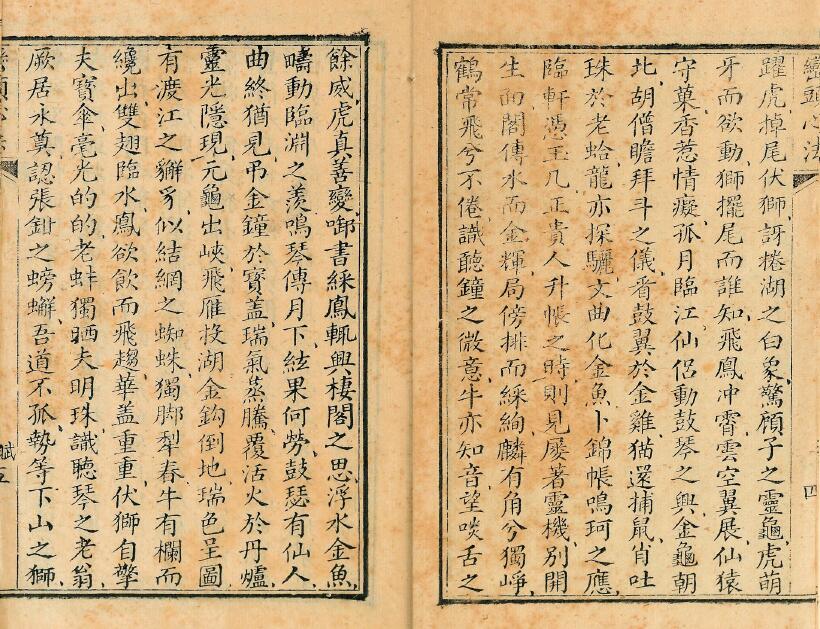 巒頭心法
躍虎掉尾伏獅訝捲湖之白象驚顧子之靈龜虎萌
牙而欲動獅擺尾而誰知飛鳳冲霄雲空翼展仙猿
守菓香惹情癡孤月臨江仙侶動鼓琴之興金龜朝
北胡僧瞻拜斗之儀看鼓翼於金雞猫還捕鼠肖吐
珠於老蛤龍亦探驪文曲化金魚卜錦帳鳴珂之應
臨軒憑玉几正貴人升帳之時則見屐著靈機別開
生面閣傳水而金輝局傍排而綵絢麟有角兮獨崢
鶴常飛兮不倦識聽鐘之微意牛亦知音望啖舌之
四
餘威虎真善變啣書綵鳳輒興棲閣之思浮水金魚
疇動臨淵之羨鳴琴傳月下絃果何勞鼓瑟有仙人
曲終猶見弔金鐘於寶蓋瑞氣蒸騰覆活火於丹爐
靈光隱現元龜出峽飛雁投湖金鈎倒地瑞色呈圖
有渡江之獬豸似結網之蜘蛛獨脚犁春牛有欄而
纔出雙翅臨水鳳欲飲而飛趨華盖重重伏獅自擎
夫寶傘毫光的的老蚌獨晒夫明珠識聽琴之老翁
厥居水奠認張鉗之螃蠏吾道不孤勢等下山之獅
賦五